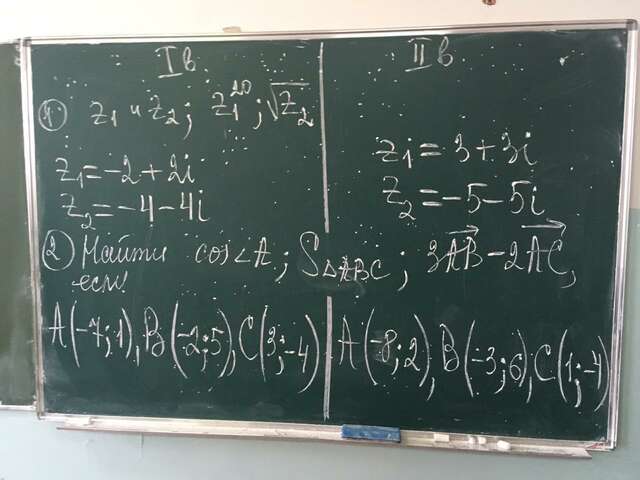 I в
II в
1) z₁ и z₂; z₁²⁰; √z₂
z₁ = -2 + 2i
z₂ = -4 - 4i
z₁ = 3 + 3i
z₂ = -5 - 5i
2) Найти cos∠A; S△ABC; 3AB⃗ - 2AC⃗,
если:
A(-7; 1), B(-2; 5), C(3; -4)
A(-8; 2), B(-3; 6), C(1; -4)